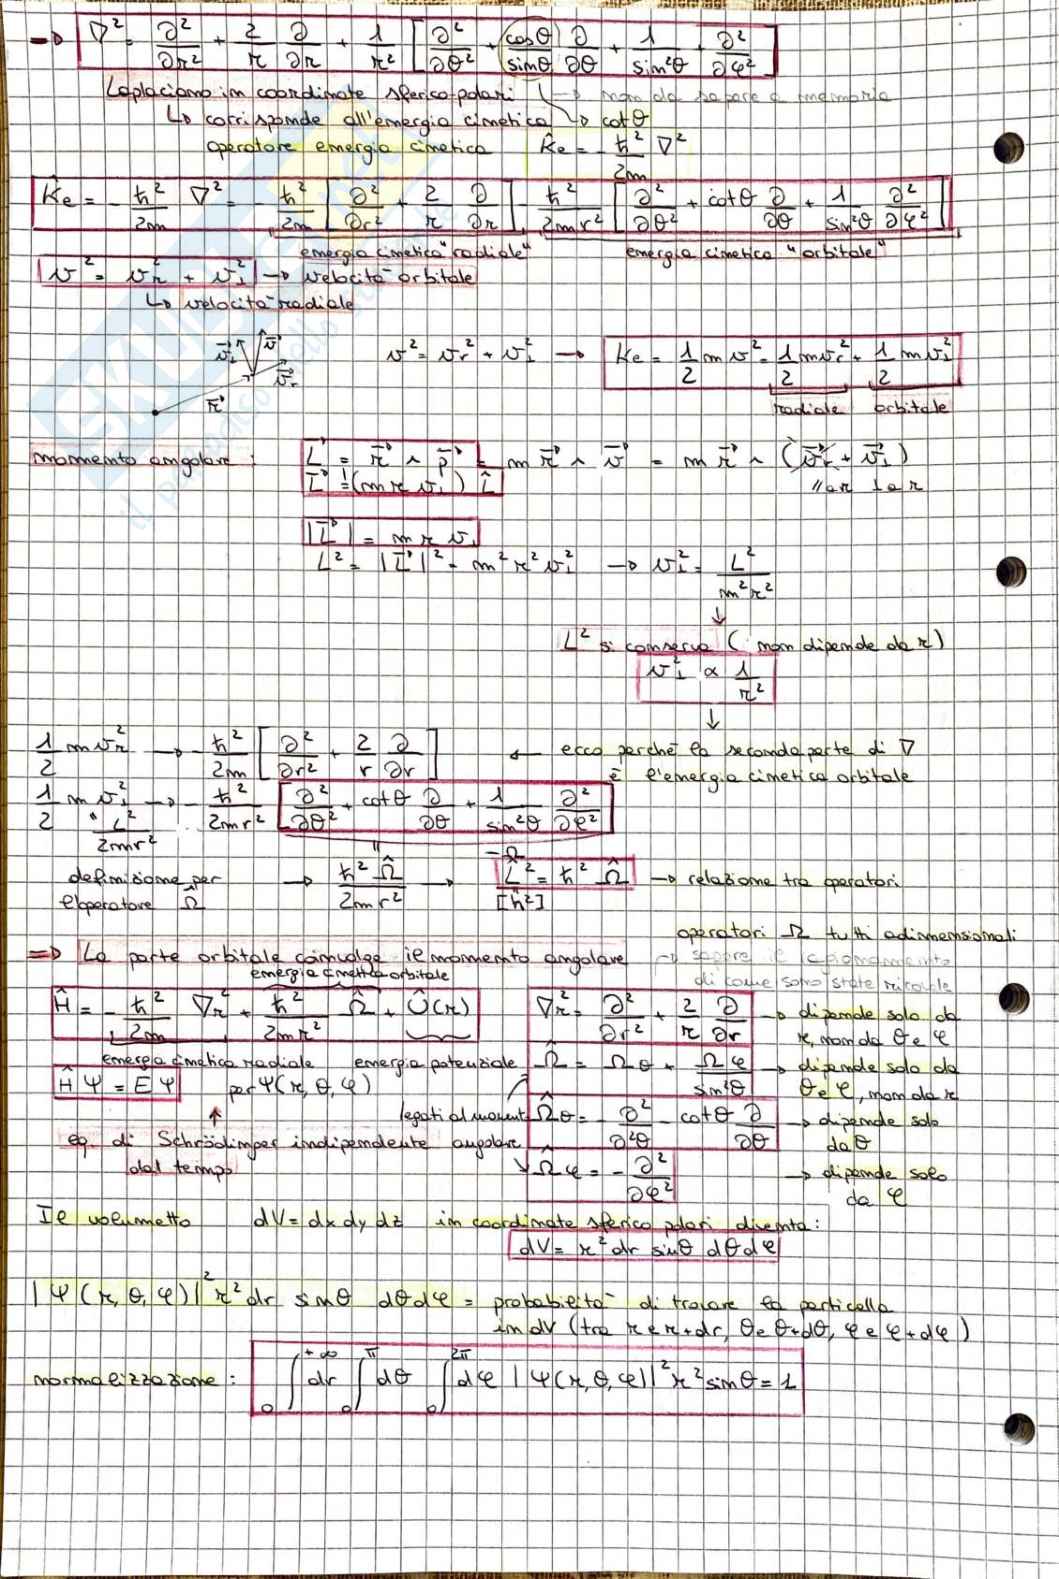 => ∇² = ∂²/∂r² + 2/r ∂/∂r + 1/r² [∂²/∂θ² + cosθ/sinθ ∂/∂θ + 1/sin²θ + ∂²/∂φ²]
Laplaciano in coordinate sferico-polari -> non da sapere a memoria
↳ corrisponde all'energia cinetica ↳ cotθ
operatore energia cinetica K̂e = -ħ²/2m ∇²
K̂e = -ħ²/2m ∇² = -ħ²/2m [∂²/∂r² + 2/r ∂/∂r] - ħ²/2mr² [∂²/∂θ² + cotθ ∂/∂θ + 1/sin²θ ∂²/∂φ²]
energia cinetica "radiale" energia cinetica "orbitale"
v² = vr² + v⊥² -> velocità orbitale
↳ velocità radiale
v⊥ v vr r
v² = vr² + v⊥² -> Ke = 1/2 m v² = 1/2 mvr² + 1/2 mv⊥²
radiale orbitale
momento angolare: L = r ∧ p = m r ∧ v = m r ∧ (vr + v⊥)
L = (m r v⊥) L̂ // a r ⊥ a r
|L| = m r v⊥
L² = |L|² = m² r² v⊥² -> v⊥² = L²/m²r²
↓
L² si conserva (non dipende da r)
v⊥² ∝ 1/r²
↓
1/2 mvr² -> -ħ²/2m [∂²/∂r² + 2/r ∂/∂r] ← ecco perché la seconda parte di ∇
è l'energia cinetica orbitale
1/2 m v⊥² -> -ħ²/2mr² [∂²/∂θ² + cotθ ∂/∂θ + 1/sin²θ ∂²/∂φ²]
" L²/2mr² -Ω̂
definizione per -> ħ² Ω̂/2mr² -> L̂² = ħ² Ω̂ -> relazione tra operatori
l'operatore Ω̂ [ħ²]
operatori Ω tutti adimensionali
=> La parte orbitale coinvolge il momento angolare -> sapere il ragionamento
di come sono state ricavate
energia cinetica orbitale
Ĥ = -ħ²/2m ∇r² + ħ²/2mr² Ω̂ + Û(r) ∇r² = ∂²/∂r² + 2/r ∂/∂r -> dipende solo da
r, non da θ e φ
energia cinetica radiale energia potenziale Ω̂ = Ωθ + Ωφ/sin²θ -> dipende solo da
θ e φ, non da r
ĤΨ = EΨ per Ψ(r, θ, φ)
legati al moment. angolare Ω̂θ = -∂²/∂²θ - cotθ ∂/∂θ -> dipende solo
da θ
eq. di Schrödinger indipendente
dal tempo Ω̂φ = -∂²/∂φ² -> dipende solo
da φ
Il volumetto dV = dx dy dz in coordinate sferico polari diventa:
dV = r² dr sinθ dθdφ
|Ψ(r, θ, φ)|² r² dr sinθ dθdφ = probabilità di trovare la particella
in dV (tra r e r+dr, θ e θ+dθ, φ e φ+dφ)
normalizzazione: ∫₀^+∞ dr ∫₀^π dθ ∫₀^2π dφ |Ψ(r, θ, φ)|² r² sinθ = 1